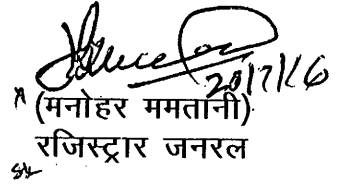 20/7/16
(मनोहर ममतानी)
रजिस्ट्रार जनरल